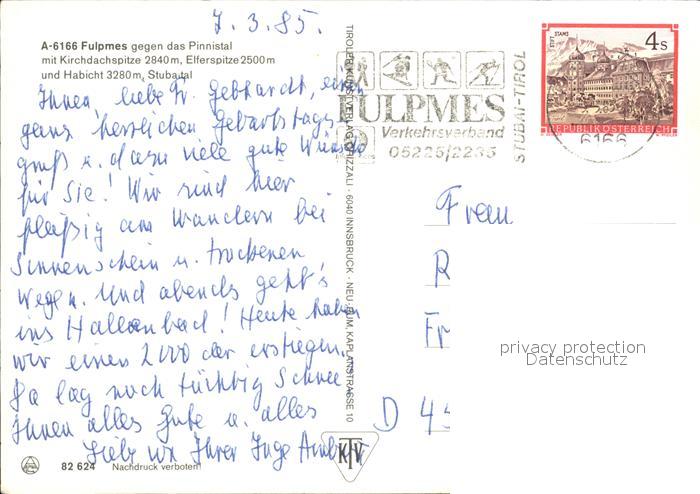 7.3.85.
A-6166 Fulpmes gegen das Pinnistal
mit Kirchdachspitze 2840m, Elferspitze 2500m
und Habicht 3280m, Stubaital
Ihnen, liebe Fr. Gebhardt, einen
ganz herzlichen Geburtstags-
gruß u. dazu viele gute Wünsche
für Sie! Wir sind hier
fleißig am Wandern bei
Sonnenschein u. trockenen
Wegen. Und abends geht's
ins Hallenbad! Heute haben
wir einen 2000der erstiegen.
Da lag noch tüchtig Schnee
Ihnen alles Gute u. alles
Liebe von Ihrer Inge
82 624 Nachdruck verboten!
TIROLER KUNSTVERLAG CHIZZALI · 6040 INNSBRUCK · NEU-RUM, KAPLANSTRASSE 10
KTV
FULPMES
Verkehrsverband
05225/2235
STUBAI-TIROL
STIFT STAMS
4 S
REPUBLIK ÖSTERREICH
6166
Frau
R
Fr
D 45
privacy protection
Datenschutz